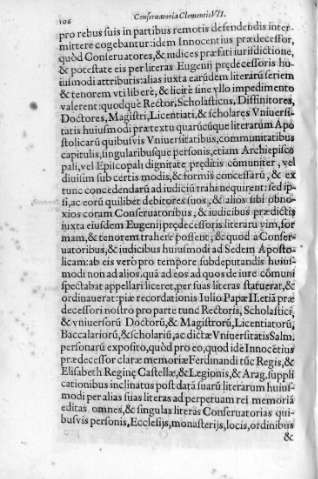 102 Conseruatoria Clementis VII.
pro rebus suis in partibus remotis defendendis inter-
mittere cogebantur: idem Innocentius prædecessor,
quòd Conseruatores, & iudices præfati iurisdictione,
& potestate eis per literas Eugenij prędecessoris hu-
iusmodi attributis: alias iuxta earúdem literarú seriem
& tenorem vti libere, & licitè sine vllo impedimento
valerent: quodque Rector, Scholasticus, Diffinitores,
Doctores, Magistri, Licentiati, & scholares Vniuersi-
tatis huiusmodi prætextu quarúcúque literarum Apo
stolicarú quibusvis Vniuersitatibus, communitatibus
capitulis, singularibusque personis, etiam Archiepisco
pali, vel Episcopali dignitate pręditis cómuniter, vel
diuisim sub certis modis, & formis concessarú, & ex
tunc concedendarú ad iudiciú trahi nequirent: sed ip-
si, ac eorú quilibet debitores suos, & alios sibi obno-
xios coram Conseruatoribus, & iudicibus prædictis
iuxta eiusdem Eugenij prędecessoris literarú vim, for
mam, & tenorem trahere possent; & quod a Conser-
uatoribus, & iudicibus huiusmodi ad Sedem Aposto-
licam: ab eis vero pro tempore subdeputandis huius-
modi non ad alios, quá ad eos ad quos de iure cómuni
spectabat appellari liceret, per suas literas statuerat, &
ordinauerat: piæ recordationis Iulio Papæ II. etiā præ
decessori nostro pro parte tunc Rectoris, Scholastici,
& vniuersorú Doctorú, & Magistrorú, Licentiatorú,
Baccalariorú, & scholariú, ac dictæ Vniuersitatis Salm.
personarú exposito, quòd pro eo, quod ide Innocetius
prædecessor claræ memoriæ Ferdinandi túc Regis, &
Elisabeth Reginę Castellæ, & Legionis, & Arag. suppli
cationibus inclinatus post datá suarú literarum huius-
modi per alias suas literas ad perpetuam rei memoriá
editas omnes, & singulas literas Conseruatorias qui-
busvis personis, Ecclesijs, monasterijs, locis, ordinibus
&